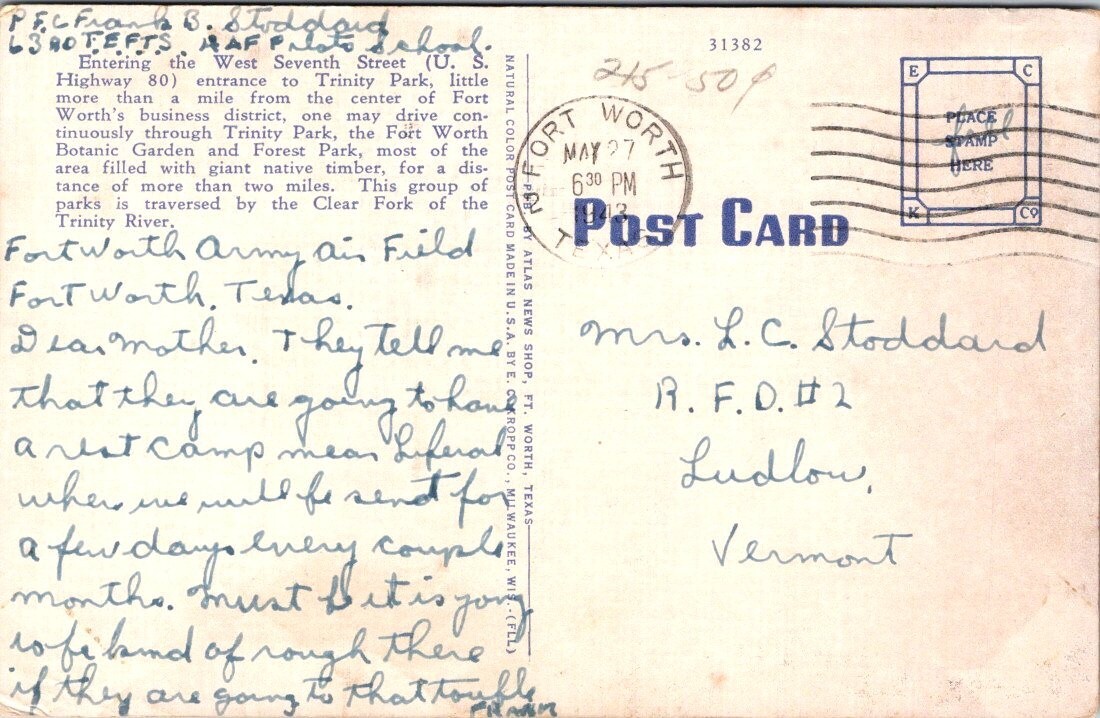 PFC Frank B. Stoddard
63 AD T.E.F.T.S. School.
31382
215 50¢
Entering the West Seventh Street (U. S.
Highway 80) entrance to Trinity Park, little
more than a mile from the center of Fort
Worth's business district, one may drive con-
tinuously through Trinity Park, the Fort Worth
Botanic Garden and Forest Park, most of the
area filled with giant native timber, for a dis-
tance of more than two miles. This group of
parks is traversed by the Clear Fork of the
Trinity River.
Fort Worth Army Air Field
Fort Worth. Texas.
Dear Mother. They tell me
that they are going to have
a rest camp near Liferal
where we will be send for
a few days every couple
months. Must be it is going
to be kind of rough there
if they are going to that trouble
FRANK
NATURAL COLOR POST CARD MADE IN U.S.A. BY E. C. KROPP CO., MILWAUKEE, WIS.-(FLL)
PUB. BY ATLAS NEWS SHOP, FT. WORTH, TEXAS
FORT WORTH 2
MAY 27
6 30 PM
1943
TEXAS
E C
PLACE
STAMP
HERE
K Co
POST CARD
Mrs. L. C. Stoddard
R. F. D. #2
Ludlow,
Vermont